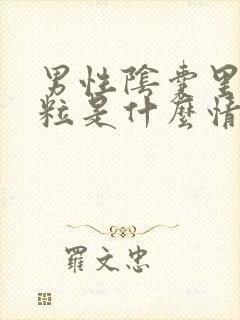 男性陰囊里
粒是什麼情
羅文忠